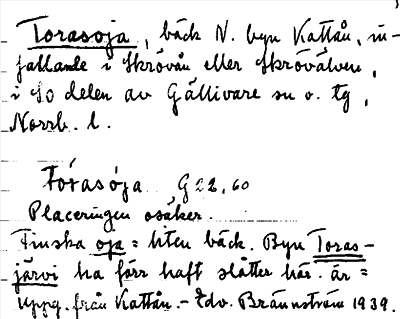 Torasoja, bäck N. byn Kattån, in-
fallande i Skrövån eller Skröválven,
i SO delen av Gällivare sn o. tg,
Norrb. l.
Tórasója G 22, 60
Placeringen osäker.
Finska oja = liten bäck. Byn Toras-
järvi ha förr haft slåtter här. är =
uppg. från Kattån. - Edv. Brännström 1939.